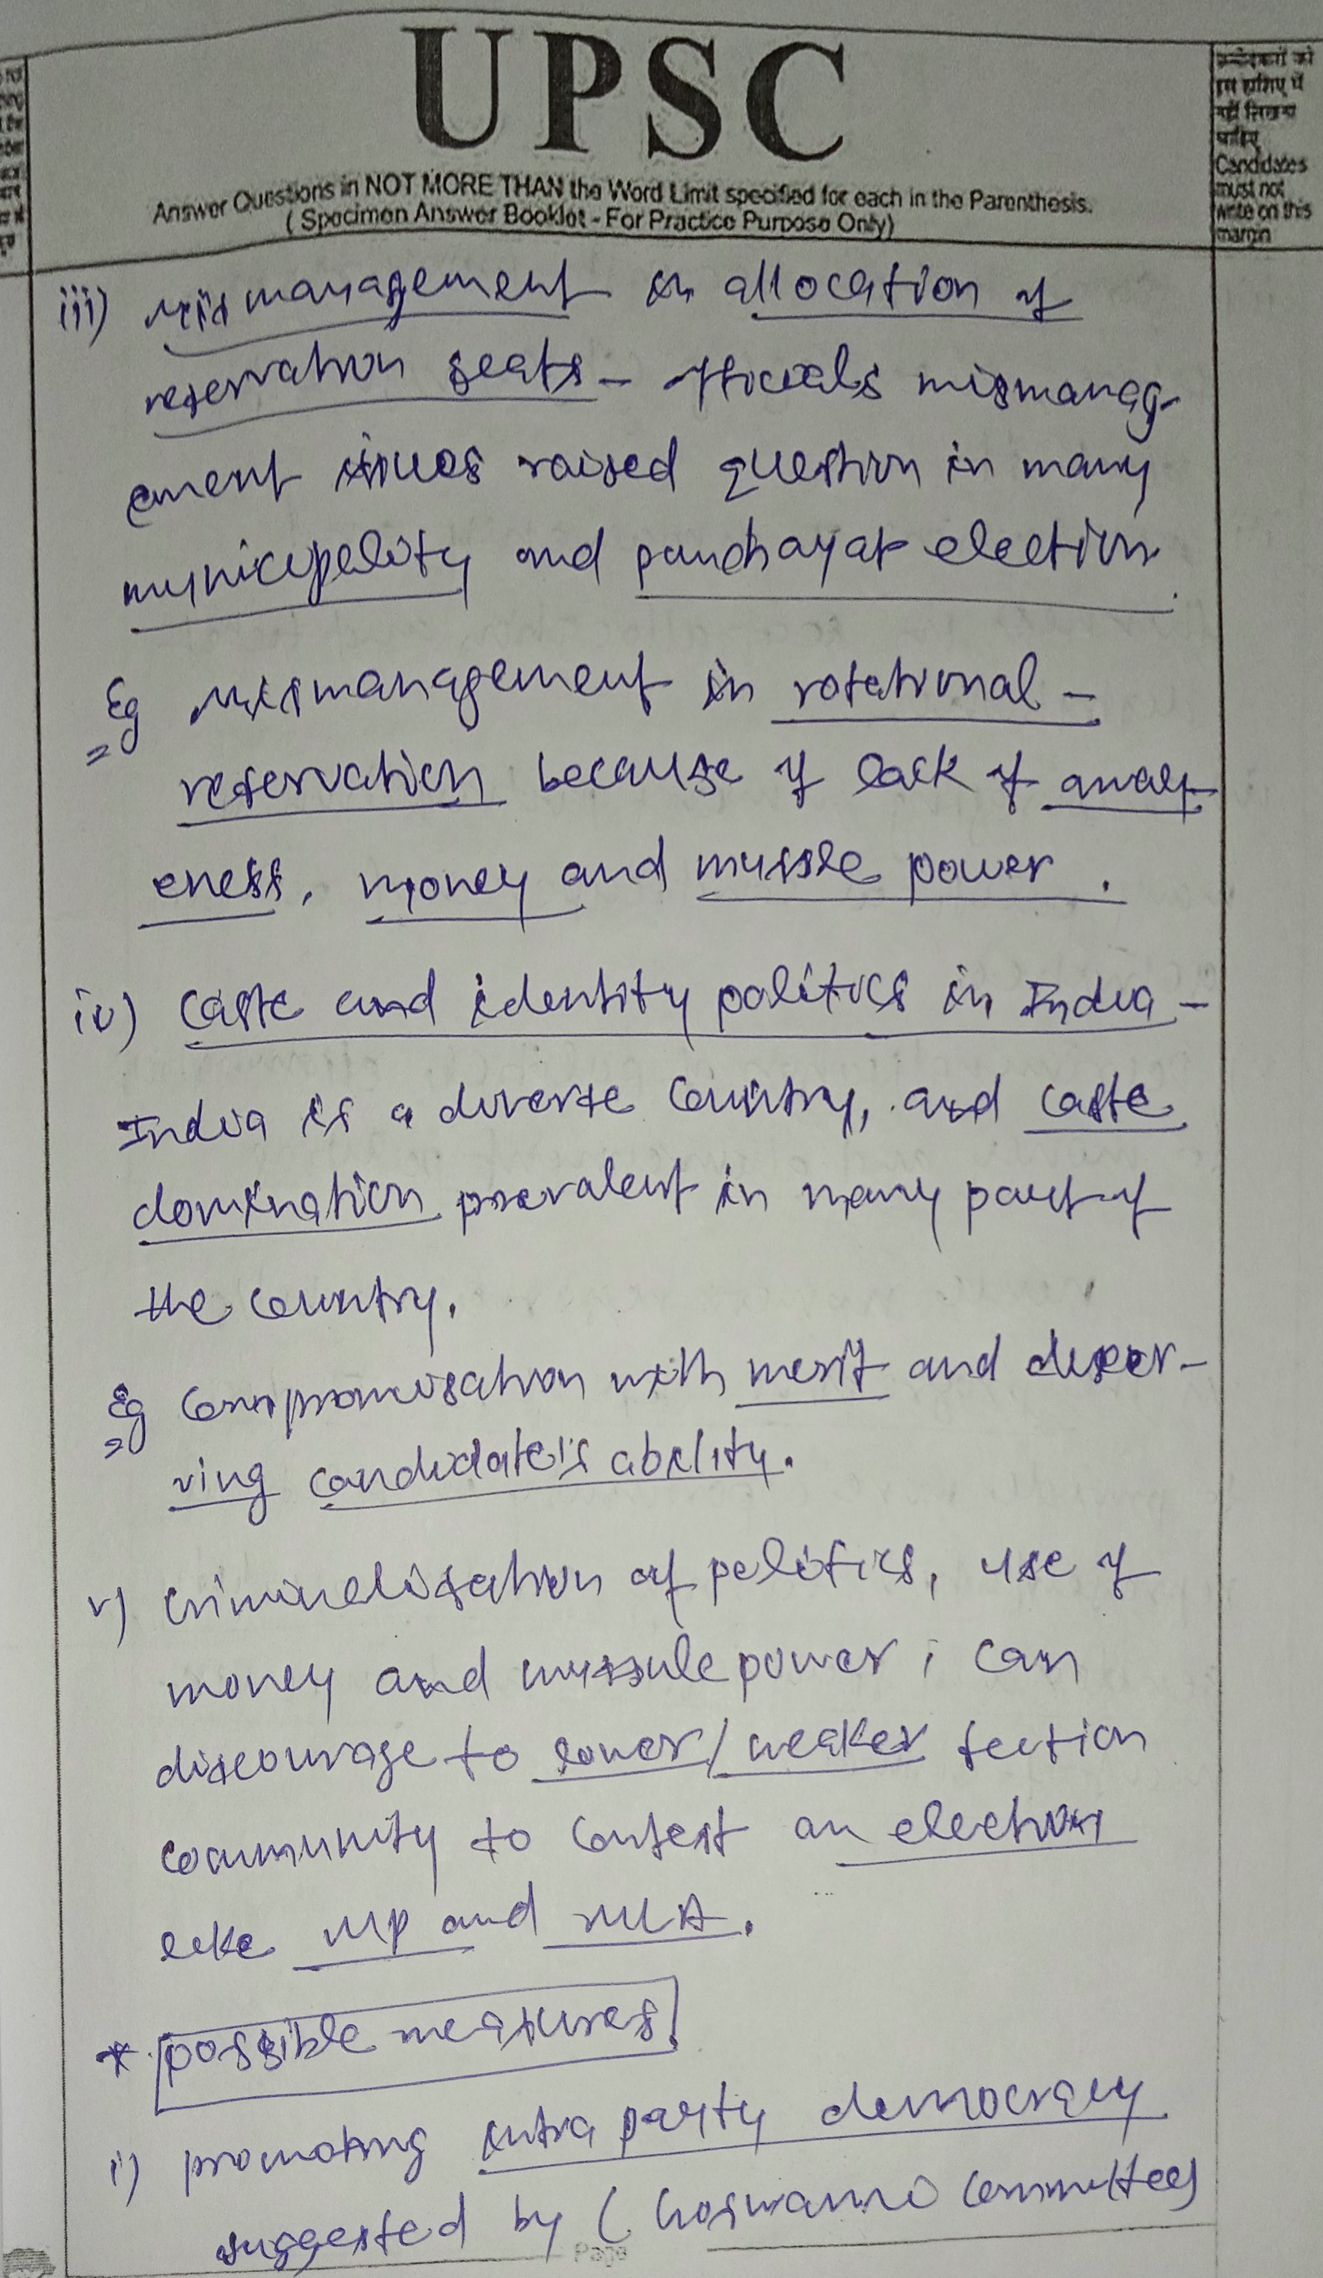 UPSC
Answer Questions in NOT MORE THAN the Word Limit specified for each in the Parenthesis.
( Specimen Answer Booklet - For Practice Purpose Only)
उम्मीदवारों को
इस हाशिए में
नहीं लिखना
चाहिए
Candidates
must not
write on this
margin
iii) Mismanagement in allocation of
reservation seats - officials mismanag-
ement issues raised question in many
municipality and panchayat election.
Eg Mismanagement in rotational -
reservation because of lack of awar-
eness, money and mussle power.
iv) Caste and identity politics in India -
India is a diverse country, and caste
domination prevalent in many part of
the country.
Eg Compromisation with merit and deser-
ving candidate's ability.
v) Criminalisation of politics, use of
money and mussule power; can
discourage to lower/weaker section
community to contest an election
like MP and MLA.
* possible measures
i) promoting intra party democracy
suggested by (Goswami Committee)
Page